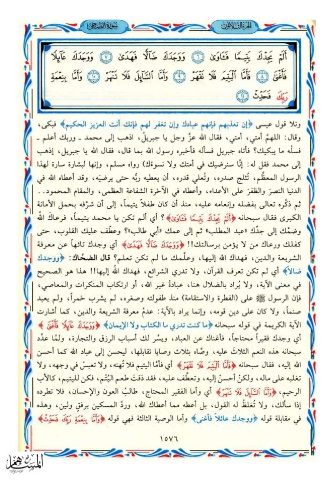 الجزء الثلاثون
سورة الضحى
أَلَمْ يَجِدْكَ يَتِيمًا فَـَٔاوَىٰ ﴿٦﴾ وَوَجَدَكَ ضَآلًّا فَهَدَىٰ ﴿٧﴾ وَوَجَدَكَ عَآئِلًا
فَأَغْنَىٰ ﴿٨﴾ فَأَمَّا ٱلْيَتِيمَ فَلَا تَقْهَرْ ﴿٩﴾ وَأَمَّا ٱلسَّآئِلَ فَلَا تَنْهَرْ ﴿١٠﴾ وَأَمَّا بِنِعْمَةِ
رَبِّكَ فَحَدِّثْ ﴿١١﴾
وتلا قول عيسى ﴿إن تعذبهم فإنهم عبادك وإن تغفر لهم فإنك أنت العزيز الحكيم﴾ فبكى،
وقال: اللهمَّ أمتي، أمتي، فقال الله عزَّ وجل يا جبريل، اذهب إلى محمد ـ وربك أعلم ـ
فسلْه ما يبكيك؟ فأتاه جبريل فسأله فأخبره رسول الله بما قال، فقال الله يا جبريل، اذهبْ
إلى محمد فقل له: إنَّا سنرضيك في أمتك ولا نسوؤك) رواه مسلم، وإنها لبشارة سارة لهذا
الرسول المعظَّم، تُثلج صدره، وتُعلي قدره، أن يعطيه ربُّه حتى يرضيَه، وقد أعطاه الله في
الدنيا النصرَ والظفرَ على الأعداء، وأعطاه في الآخرة الشفاعة العظمى، والمقام المحمود..
ثم ذكَّره تعالى بفضله وإنعامه عليه، منذ أن كان طفلاً يتيماً، إلى أن شرَّفه بحمل الأمانة
الكبرى فقال سبحانه ﴿أَلَمْ يَجِدْكَ يَتِيمًا فَآوَىٰ﴾؟ أي ألم تكن يا محمد يتيماً، فرعاك اللهُ
وضمَّك إلى جدِّك «عبد المطلب» ثم إلى عمك «أبي طالب»؟ وعطَّف عليك القلوب، حتى
كفلك ورعاك من لا يؤمن برسالتك!! ﴿وَوَجَدَكَ ضَالًّا فَهَدَىٰ﴾ أي وجدك تائهاً عن معرفة
الشريعة والدين، فهداك الله إليها، وعلَّمك ما لم تكن تعلم؟ قال الضحَّاك: ﴿ووجدك
ضالاً﴾ أي لم تكن تعرف القرآن، ولا تدري الشرائع، فهداك اللهُ إليها!! هذا هو الصحيح
في معنى الآية، ولا يُراد بالضلال هنا، عبادةُ غير الله، أو ارتكاب المنكرات والمعاصي،
فإن الرسول ﷺ على (الفطرة والاستقامة) منذ طفولته وصغره، لم يشرب خمراً، ولم يعبد
صنماً، ولا كان على دين قومه، وإنما يراد بالآية: عدمُ معرفة الشريعة والدين، كما أشارت
الآية الكريمة في قوله سبحانه ﴿ما كنت تدري ما الكتاب ولا الإيمان﴾ ﴿وَوَجَدَكَ عَائِلًا فَأَغْنَىٰ﴾
أي وجدك فقيراً محتاجاً، فأغناك عن العباد، ويسَّر لك أسباب الرزق والتجارة، ولمَّا عدَّد
سبحانه هذه النعم الثلاث عليه، وصَّاه بثلاث وصايا تقابلها، ليحسن إلى عباد الله كما أحسن
الله إليه، فقال سبحانه ﴿فَأَمَّا الْيَتِيمَ فَلَا تَقْهَرْ﴾ أي فأمَّا اليتيم فلا تُهنه، ولا تعبسْ في وجهه، ولا
تغلبه على ماله، ولكنْ أحسنْ إليه، وتعطَّف عليه، فقد ذقتَ طعم اليُتم، فكن لليتيم، كالأب
الرحيم، ﴿وَأَمَّا السَّائِلَ فَلَا تَنْهَرْ﴾ أي وأما الفقير المحتاج، طالبُ العون والإحسان، فلا تطرده
إذا سألك، ولا تُغلظ له القول، بل أعطه مما أعطاك الله، وردَّ المسكين برفقٍ ولين، وهذه
في مقابلة قوله ﴿ووجدك عائلاً فأغنى﴾ وأما الوصية الثالثة فهي قوله ﴿وَأَمَّا بِنِعْمَةِ رَبِّكَ فَحَدِّثْ﴾
١٥٧٦